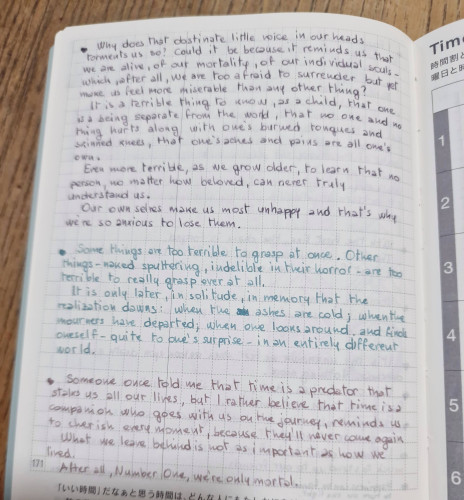 • Why does that obstinate little voice in our heads
torments us so? Could it be because it reminds us that
we are alive, of our mortality, of our individual souls-
which, after all, we are too afraid to surrender but yet
make us feel more miserable than any other thing?
It is a terrible thing to know, as a child, that one
is a being separate from the world, that no one and no
thing hurts along with one's burned tongues and
skinned knees, that one's aches and pains are all one's
own.
Even more terrible, as we grow older, to learn that no
person, no matter how beloved, can never truly
understand us.
Our own selves make us most unhappy and that's why
we're so anxious to lose them.
• Some things are too terrible to grasp at once. Other
things - naked sputtering, indelible in their horror - are too
terrible to really grasp ever at all.
It is only later, in solitude, in memory that the
realization dawns: when the ashes are cold; when the
mourners have departed; when one looks around and finds
oneself - quite to one's surprise - in an entirely different
world.
• Someone once told me that time is a predator that
stalks us all our lives, but I rather believe that time is a
companion who goes with us on the journey, reminds us
to cherish every moment, because they'll never come again
What we leave behind is not as important as how we
lived.
After all, Number One, we're only mortal.
171
「いい時間」だなぁと思う時間は、どんな
Time
時間割と
曜日と
1
2
3
4
5
6